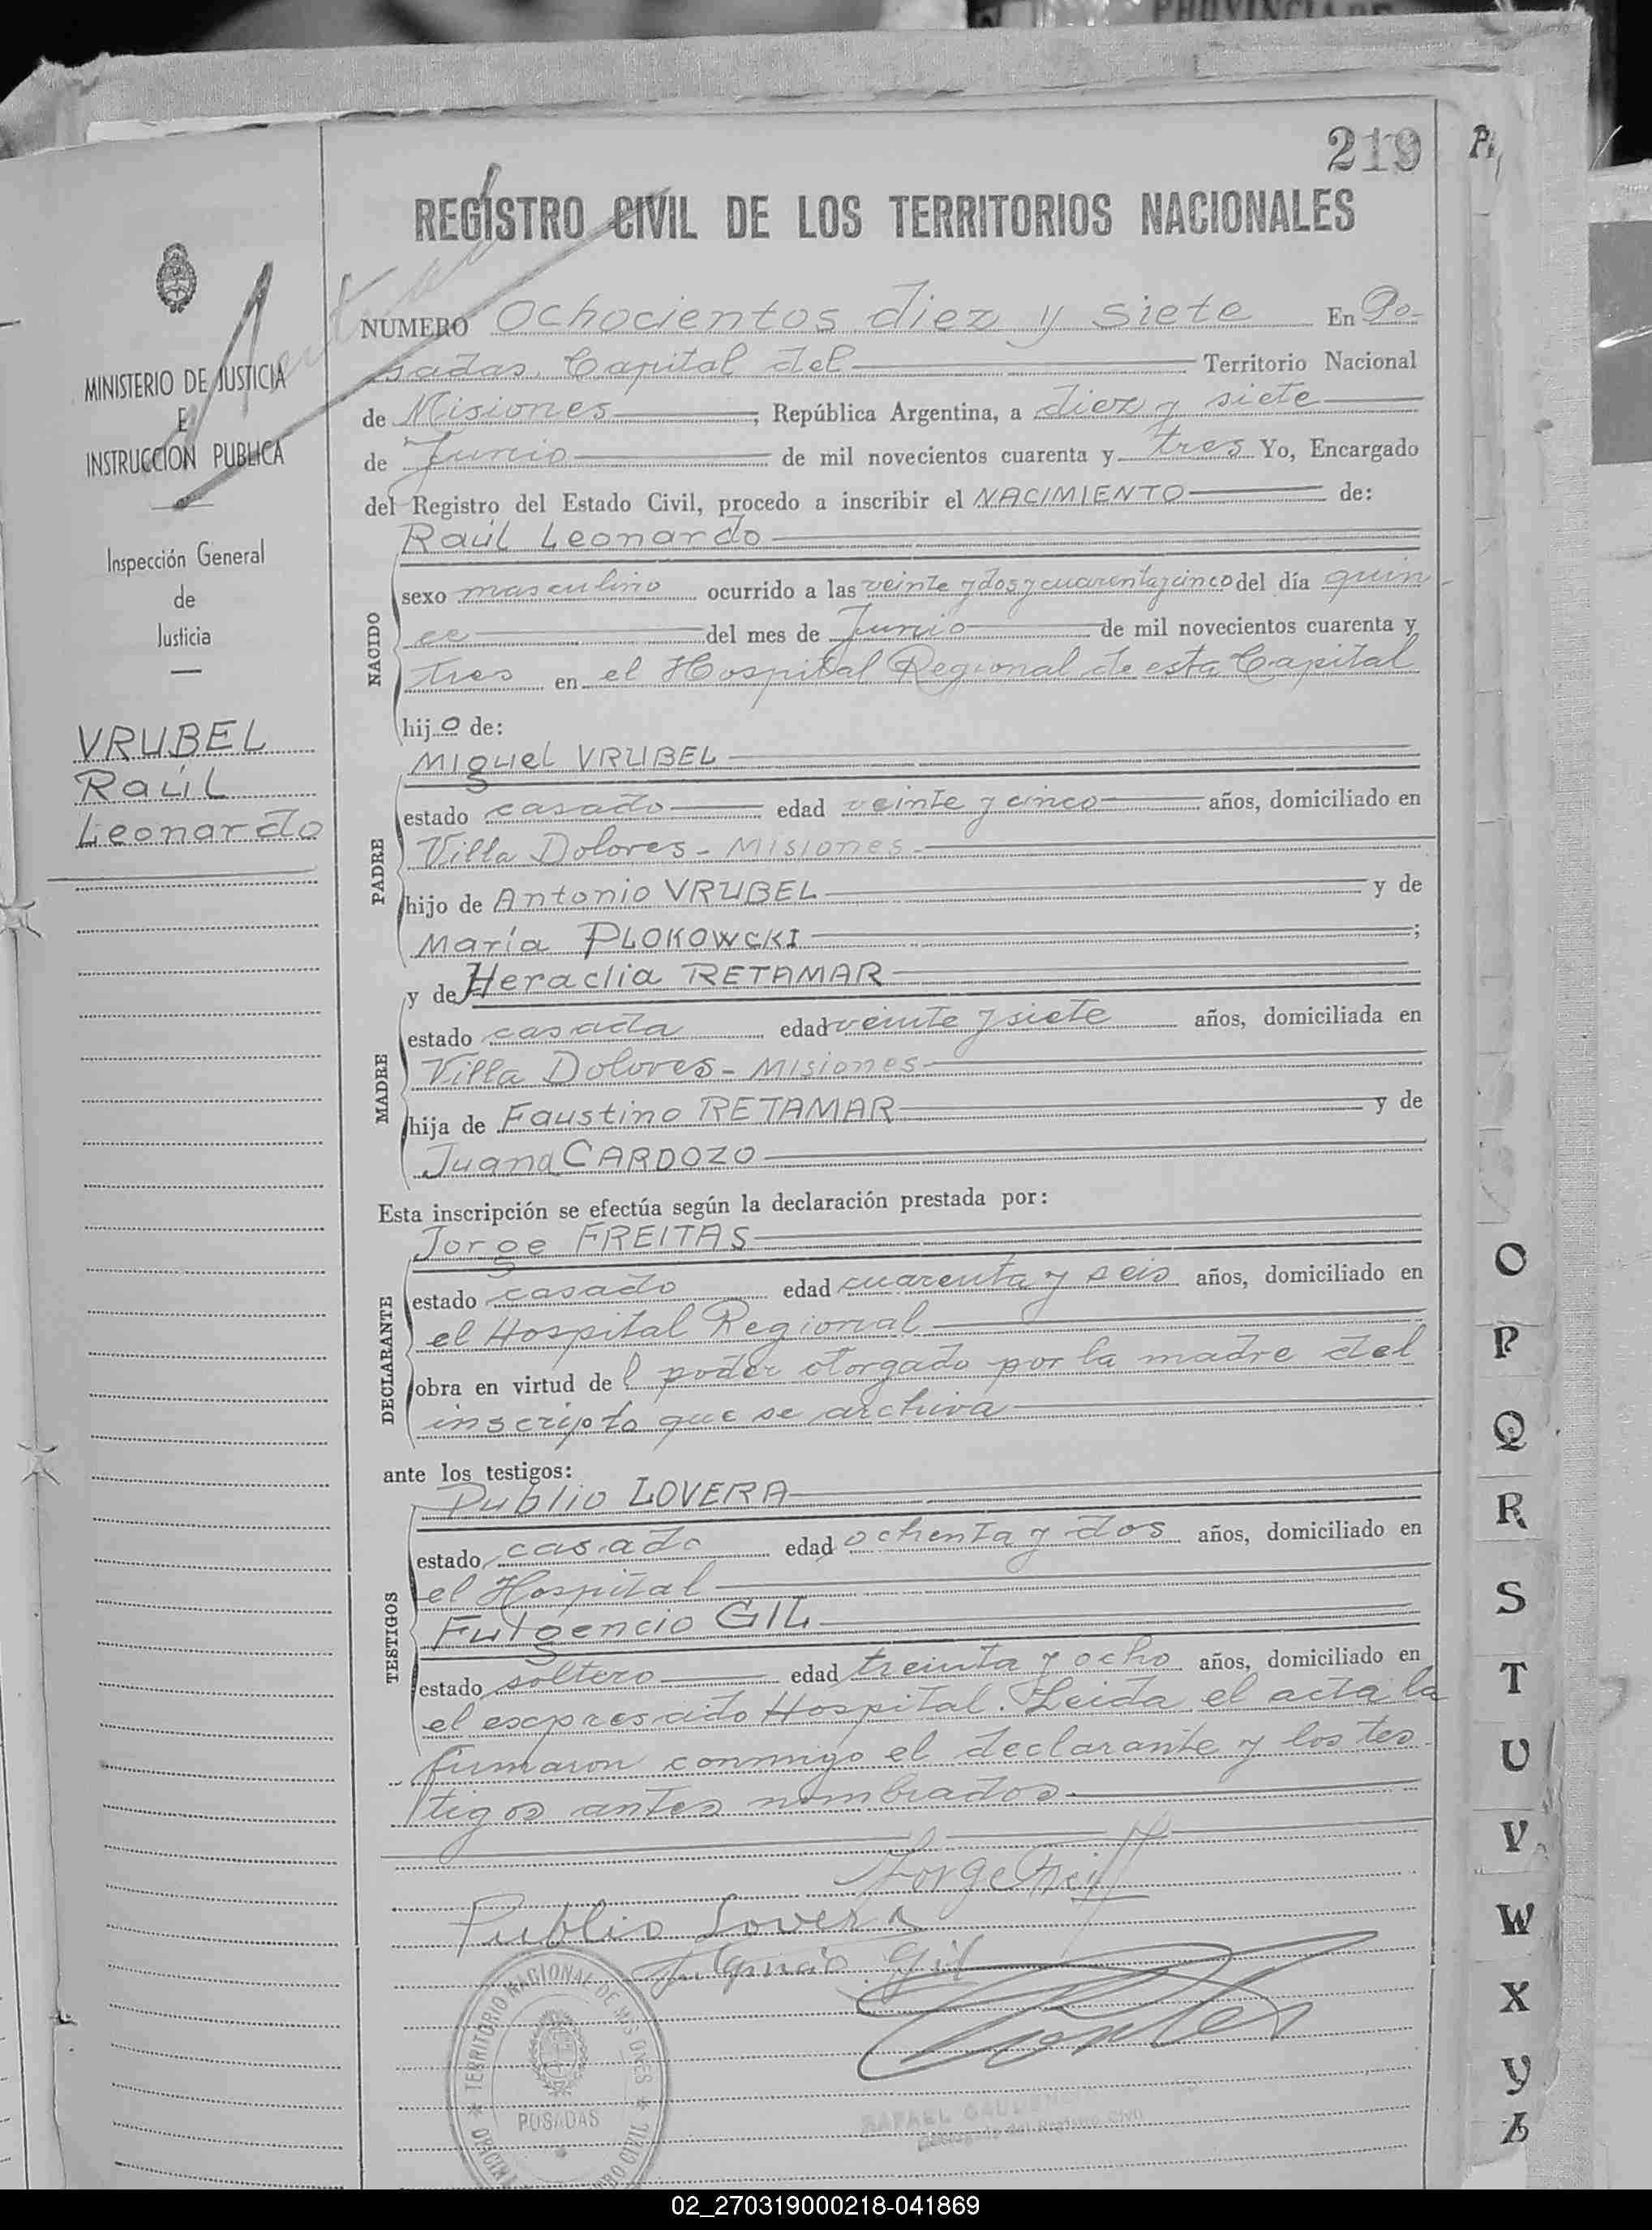 PROVINCIA DE
219
REGISTRO CIVIL DE LOS TERRITORIOS NACIONALES
MINISTERIO DE JUSTICIA
E
INSTRUCCION PUBLICA
Inspección General
de
Justicia
VRUBEL
Raúl
Leonardo
NUMERO Ochocientos diez y siete En Po-
sadas, Capital del Territorio Nacional
de Misiones, República Argentina, a diez y siete
de Junio de mil novecientos cuarenta y tres Yo, Encargado
del Registro del Estado Civil, procedo a inscribir el NACIMIENTO de:
Raúl Leonardo
NACIDO
sexo masculino ocurrido a las veinte y dos y cuarenta y cinco del día quin-
ce del mes de Junio de mil novecientos cuarenta y
tres en el Hospital Regional de esta Capital
hijo de:
Miguel VRUBEL
PADRE
estado casado edad veinte y cinco años, domiciliado en
Villa Dolores - Misiones -
hijo de Antonio VRUBEL y de
María PLOKOWCKI ;
y de Heraclia RETAMAR
MADRE
estado casada edad veinte y siete años, domiciliada en
Villa Dolores - Misiones -
hija de Faustino RETAMAR y de
Juana CARDOZO
Esta inscripción se efectúa según la declaración prestada por:
Jorge FREITAS
DECLARANTE
estado casado edad cuarenta y seis años, domiciliado en
el Hospital Regional
obra en virtud del poder otorgado por la madre del
inscripto que se archiva
ante los testigos:
Publio LOVERA
TESTIGOS
estado casado edad ochenta y dos años, domiciliado en
el Hospital
Fulgencio GIL
estado soltero edad treinta y ocho años, domiciliado en
el expresado Hospital. Leida el acta la
firmaron conmigo el declarante y los tes-
tigos antes nombrados.
Jorge
Publio Lovera
Fulgencio Gil
TERRITORIO NACIONAL DE MISIONES
POSADAS
RAFAEL
del Registro Civil
O
P
Q
R
S
T
U
V
W
X
Y
Z
02_270319000218-041869